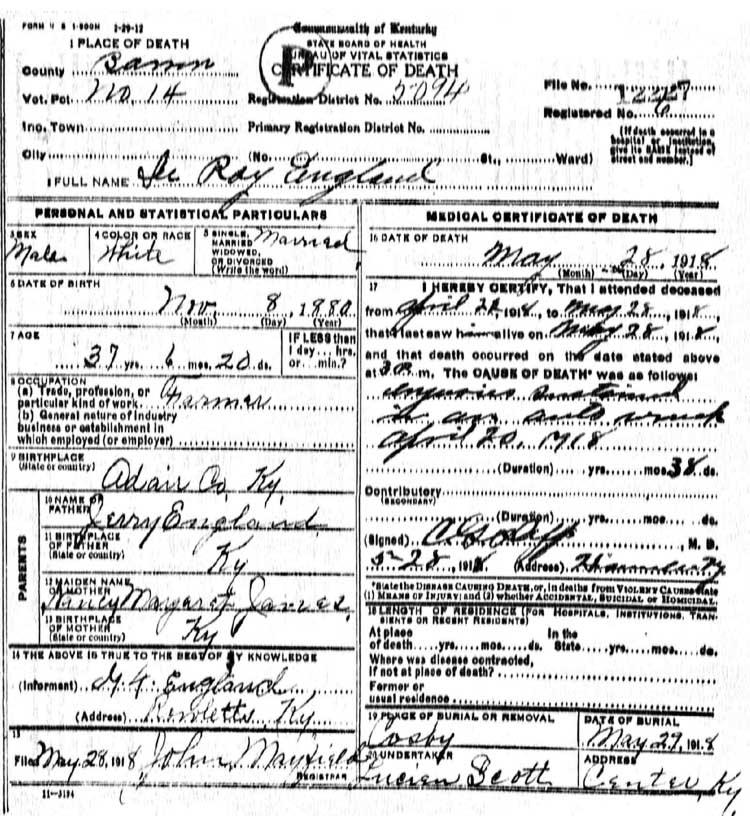 FORM V S 1-500M 1-29-12
Commonwealth of Kentucky
STATE BOARD OF HEALTH
BUREAU OF VITAL STATISTICS
CERTIFICATE OF DEATH
P
1 PLACE OF DEATH
County Barren
Vot. Pct. No. 14
Registration District No. 5094
File No. 12227
Registered No. 6
Inc. Town
Primary Registration District No.
City (No. St., Ward)
(If death occurred in a hospital or institution, give its NAME instead of street and number.)
2 FULL NAME Roy England
PERSONAL AND STATISTICAL PARTICULARS
3 SEX Male
4 COLOR OR RACE White
5 SINGLE, MARRIED WIDOWED, OR DIVORCED (Write the word) Married
6 DATE OF BIRTH
Nov. 8, 1880
(Month) (Day) (Year)
7 AGE
37 yrs. 6 mos. 20 ds.
IF LESS than 1 day... hrs. or... min.?
8 OCCUPATION
(a) Trade, profession, or particular kind of work. Farmer
(b) General nature of industry business or establishment in which employed (or employer)
9 BIRTHPLACE
(State or country)
Adair Co, Ky.
PARENTS
10 NAME OF FATHER
Jerry England
11 BIRTHPLACE OF FATHER
(State or country)
Ky
12 MAIDEN NAME OF MOTHER
Nancy Margaret James
13 BIRTHPLACE OF MOTHER
(State or country)
Ky
14 THE ABOVE IS TRUE TO THE BEST OF MY KNOWLEDGE
(Informant) England
(Address) Rowletts, Ky
15
Filed May 28, 1918 John Mayfield
REGISTRAR
11-3194
MEDICAL CERTIFICATE OF DEATH
16 DATE OF DEATH
May 28, 1918
(Month) (Day) (Year)
17 I HEREBY CERTIFY, That I attended deceased
from April 20, 1918, to May 28, 1918,
that I last saw him alive on May 28, 1918,
and that death occurred on the date stated above
at 3 m. The CAUSE OF DEATH* was as follows:
injuries sustained
in an auto wreck
April 20, 1918
(Duration) yrs. mos. 38 ds.
Contributory
(SECONDARY)
(Duration) yrs. mos. ds.
(Signed) , M. D.
5-28, 1918 (Address)
*State the DISEASE CAUSING DEATH, or, in deaths from VIOLENT CAUSES state (1) MEANS OF INJURY; and (2) whether ACCIDENTAL, SUICIDAL or HOMICIDAL.
18 LENGTH OF RESIDENCE (FOR HOSPITALS, INSTITUTIONS, TRANSIENTS OR RECENT RESIDENTS)
At place of death yrs. mos. ds. In the State yrs. mos. ds.
Where was disease contracted,
If not at place of death?
Former or usual residence
19 PLACE OF BURIAL OR REMOVAL
Cosby
DATE OF BURIAL
May 29, 1918
20 UNDERTAKER
Lucien Scott
ADDRESS
Center, Ky